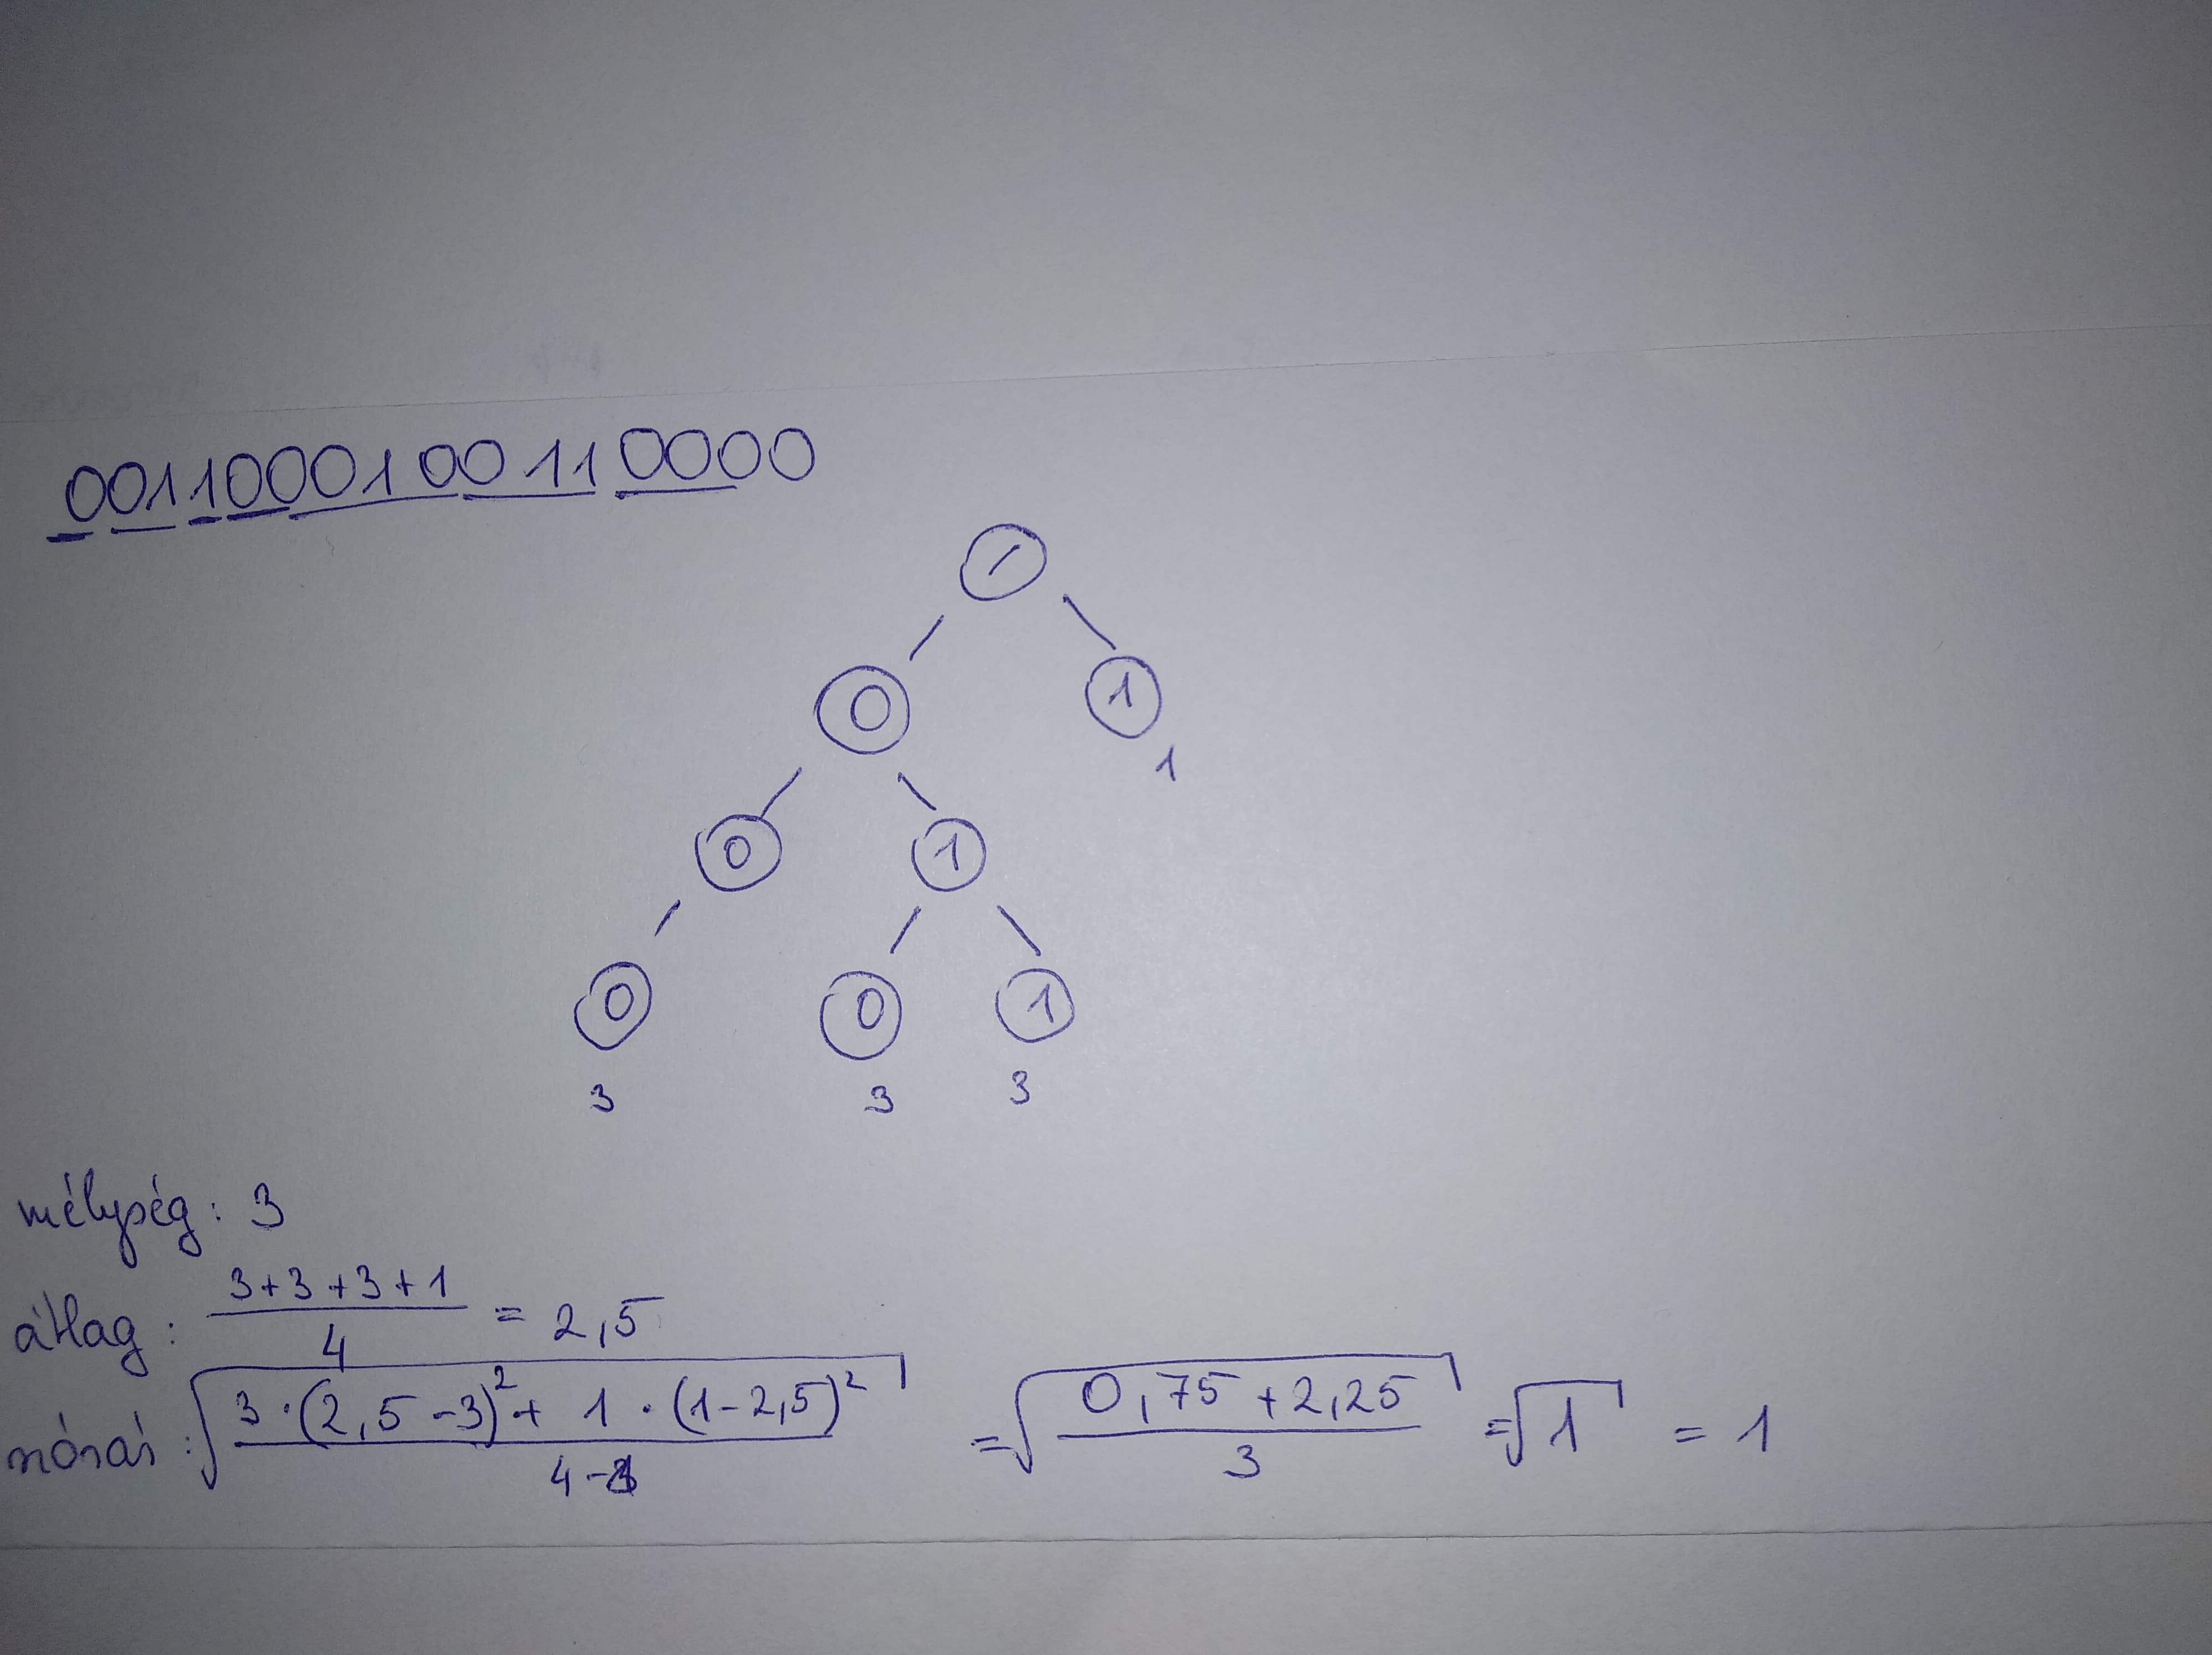 0011000100110000
/
0 1
1
0 1
0 0 1
3 3 3
mélység: 3
átlag: (3+3+3+1)/4 = 2,5
szórás: √((3·(2,5-3)²+1·(1-2,5)²)/(4-1)) = √((0,75+2,25)/3) = √1 = 1